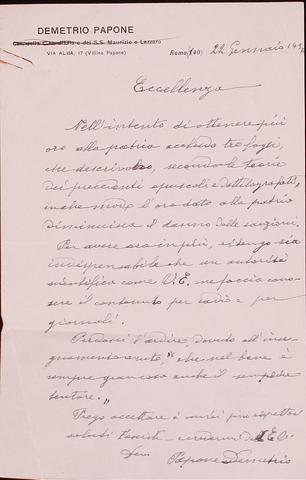 DEMETRIO PAPONE
Cav. della e dei S.S. Maurizio e Lazzaro
VIA ALBA, 17 (Villino Papone)
Roma (140) 22 Gennaio
Eccellenza
Nell'intento di ottenere più
oro alla patria accludo tre fogli,
che descrivo, secondo le teorie
dei precedenti opuscoli e
l'oro dato alla patria
diminuisca il danno delle sanzioni.
Per avere oro in più, ritengo sia
indispensabile che un autorità
scientifica come V.E. ne faccia
il contenuto per radio e per
giornali.
Perdoni l'ardire dovuto all'inse-
gnamento avuto, "che nel bene è
sempre anche il semplice
tentare."
Prego accettare i miei più rispettosi
saluti Fascisti
Papone Demetrio